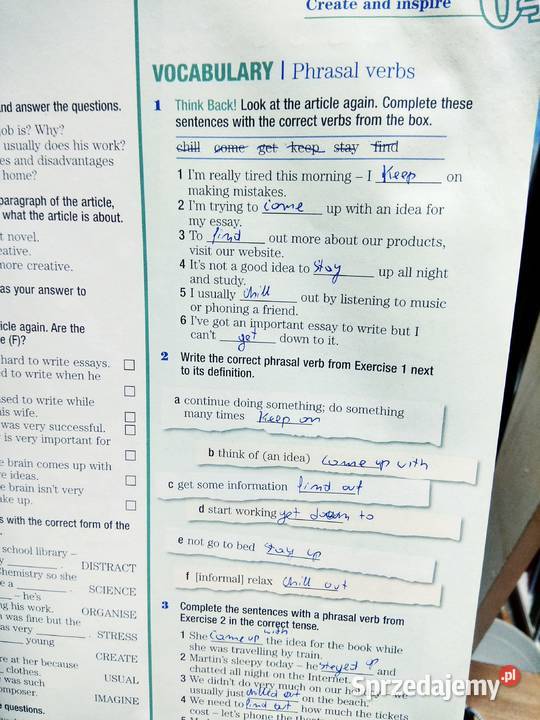 Create and inspire
VOCABULARY | Phrasal verbs
1 Think Back! Look at the article again. Complete these
sentences with the correct verbs from the box.
chill come get keep stay find
1 I'm really tired this morning – I keep on
making mistakes.
2 I'm trying to come up with an idea for
my essay.
3 To find out more about our products,
visit our website.
4 It's not a good idea to stay up all night
and study.
5 I usually chill out by listening to music
or phoning a friend.
6 I've got an important essay to write but I
can't get down to it.
2 Write the correct phrasal verb from Exercise 1 next
to its definition.
a continue doing something; do something
many times keep on
b think of (an idea) come up with
c get some information find out
d start working get down to
e not go to bed stay up
f [informal] relax chill out
3 Complete the sentences with a phrasal verb from
Exercise 2 in the correct tense.
1 She came up with the idea for the book while
she was travelling by train.
2 Martin's sleepy today – he stayed up and
chatted all night on the Internet.
3 We didn't do very much on our
usually just chilled out on the beach.
4 We need to find out how much the tickets
cost – let's phone the
nd answer the questions.
ob is? Why?
usually does his work?
es and disadvantages
home?
paragraph of the article,
what the article is about.
t novel.
eative.
more creative.
as your answer to
icle again. Are the
e (F)?
hard to write essays.
d to write when he
sed to write while
is wife.
was very successful.
is very important for
e brain comes up with
e ideas.
e brain isn't very
ake up.
s with the correct form of the
school library –
y . DISTRACT
hemistry so she
e a . SCIENCE
– he's
g his work. ORGANISE
n was fine but the
as very . STRESS
young
CREATE
re at her because
clothes. USUAL
was such
omposer. IMAGINE
e questions.
Sprzedajemy.pl